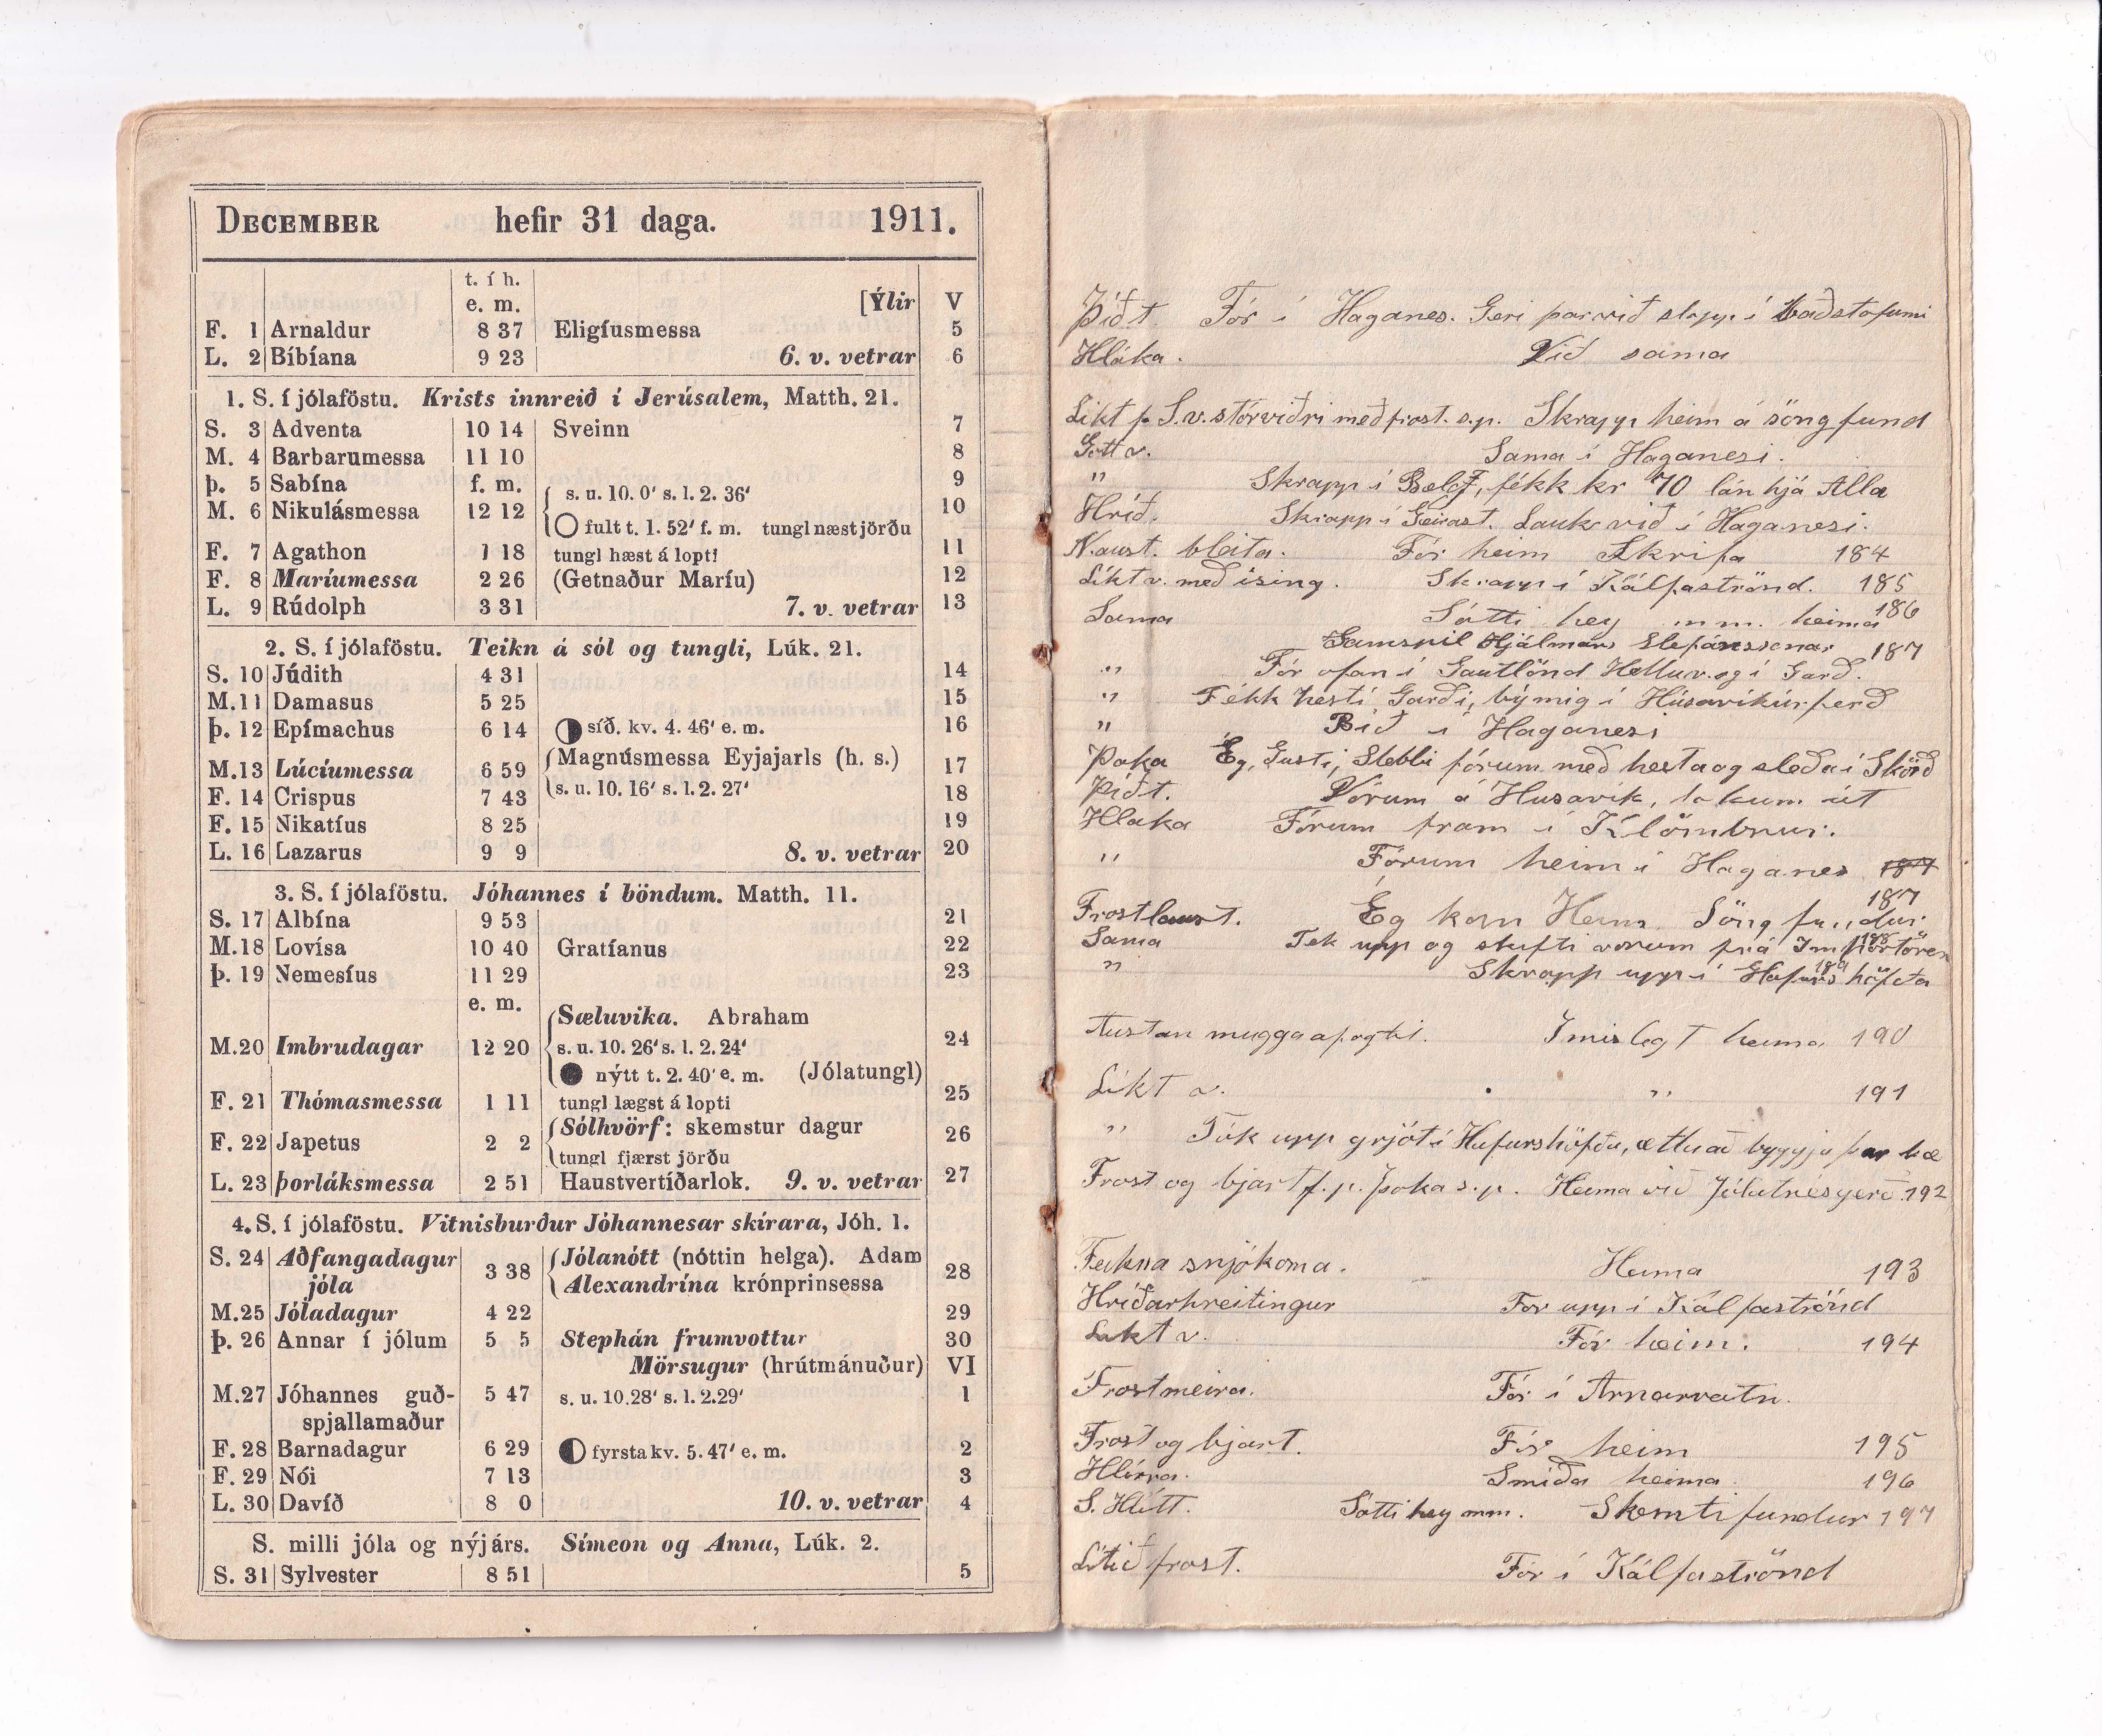 DECEMBER hefir 31 daga. 1911.
t. í h.
e. m. [Ýlir V
F. 1 Arnaldur 8 37 Eligíusmessa 5
L. 2 Bíbíana 9 23 6. v. vetrar 6
1. S. í jólaföstu. Krists innreið í Jerúsalem, Matth. 21.
S. 3 Adventa 10 14 Sveinn 7
M. 4 Barbarumessa 11 10 8
Þ. 5 Sabína f. m. s. u. 10. 0' s. l. 2. 36' 9
M. 6 Nikulásmessa 12 12 fult t. 1. 52' f. m. tungl næst jörðu 10
F. 7 Agathon 1 18 tungl hæst á lopti 11
F. 8 Maríumessa 2 26 (Getnaður Maríu) 12
L. 9 Rúdolph 3 31 7. v. vetrar 13
2. S. í jólaföstu. Teikn á sól og tungli, Lúk. 21.
S. 10 Júdith 4 31 14
M. 11 Damasus 5 25 15
Þ. 12 Epímachus 6 14 síð. kv. 4. 46' e. m. 16
M. 13 Lúcíumessa 6 59 Magnúsmessa Eyjajarls (h. s.) 17
F. 14 Crispus 7 43 s. u. 10. 16' s. l. 2. 27' 18
F. 15 Nikatíus 8 25 19
L. 16 Lazarus 9 9 8. v. vetrar 20
3. S. í jólaföstu. Jóhannes í böndum. Matth. 11.
S. 17 Albína 9 53 21
M. 18 Lovísa 10 40 Gratíanus 22
Þ. 19 Nemesíus 11 29 23
e. m. Sæluvika. Abraham
M. 20 Imbrudagar 12 20 s. u. 10. 26' s. l. 2. 24' 24
nýtt t. 2. 40' e. m. (Jólatungl)
F. 21 Thómasmessa 1 11 tungl lægst á lopti 25
F. 22 Japetus 2 2 Sólhvörf: skemstur dagur 26
tungl fjærst jörðu
L. 23 Þorláksmessa 2 51 Haustvertíðarlok. 9. v. vetrar 27
4. S. í jólaföstu. Vitnisburður Jóhannesar skírara, Jóh. 1.
S. 24 Aðfangadagur jóla 3 38 Jólanótt (nóttin helga). Adam 28
Alexandrína krónprinsessa
M. 25 Jóladagur 4 22 29
Þ. 26 Annar í jólum 5 5 Stephán frumvottur 30
Mörsugur (hrútmánuður) VI
M. 27 Jóhannes guð- 5 47 s. u. 10.28' s. l. 2.29' 1
spjallamaður
F. 28 Barnadagur 6 29 fyrsta kv. 5. 47' e. m. 2
F. 29 Nói 7 13 3
L. 30 Davíð 8 0 10. v. vetrar 4
S. milli jóla og nýjárs. Símeon og Anna, Lúk. 2.
S. 31 Sylvester 8 51 5
Þíðt. Fór í Haganes. Geri þar við slopp í baðstofunni
Hláka. Við sama
Líkt f. S.v. stórviðri með frost. s.p. Skrapp heim á söngfund
Gott v. Sama í Haganesi.
" Skrapp í Belg, fékk kr 70 lán hjá Alla
Hríð. Skrapp í Geirast. Lauk við í Haganesi.
N.aust. bleita. Fór heim Skrifa 184
Líkt v. með ísing. Skrapp í Kálfaströnd. 185
Sama Sótti hey m.m. heima 186
Samspil Hjálmars Stefánssonar 187
" Fór ofan í Gautlönd Helluv. og í Garð.
" Fékk hest í Garði, bý mig í Húsavíkurferð
" Bið í Haganesi
Þoka Ég, Gusti, Stebbi fórum með hesta og sleða í Skörð
Þíðt. Vórum á Húsavík, tókum út
Hláka Fórum fram í Klömbrur.
" Fórum heim í Haganes 187
Frostlaust. Ég kom Heim. Söngfundur 187
Sama Tek upp og skifti vorum frá 188
" Skrapp upp í Hafurshöfða 189
Austan mugga af og til. Imislegt heima 190
Líkt v. " 191
" Tók upp grjót í Hafurshöfða, ætla að byggja þar bæ
Frost og bjart f.p. þoka s.p. Heima við Jólatrésgerð. 192
Fukna snjókoma. Heima 193
Hríðarhreitingur Fór upp í Kálfaströnd
Líkt v. Fór heim. 194
Frostmeira. Fór í Arnarvatn.
Frost og bjart. Fór heim 195
Hlírra. Smíða heima 196
S. Hlítt. Sótti hey mm. Skemtifundur 197
Lítið frost. Fór í Kálfaströnd